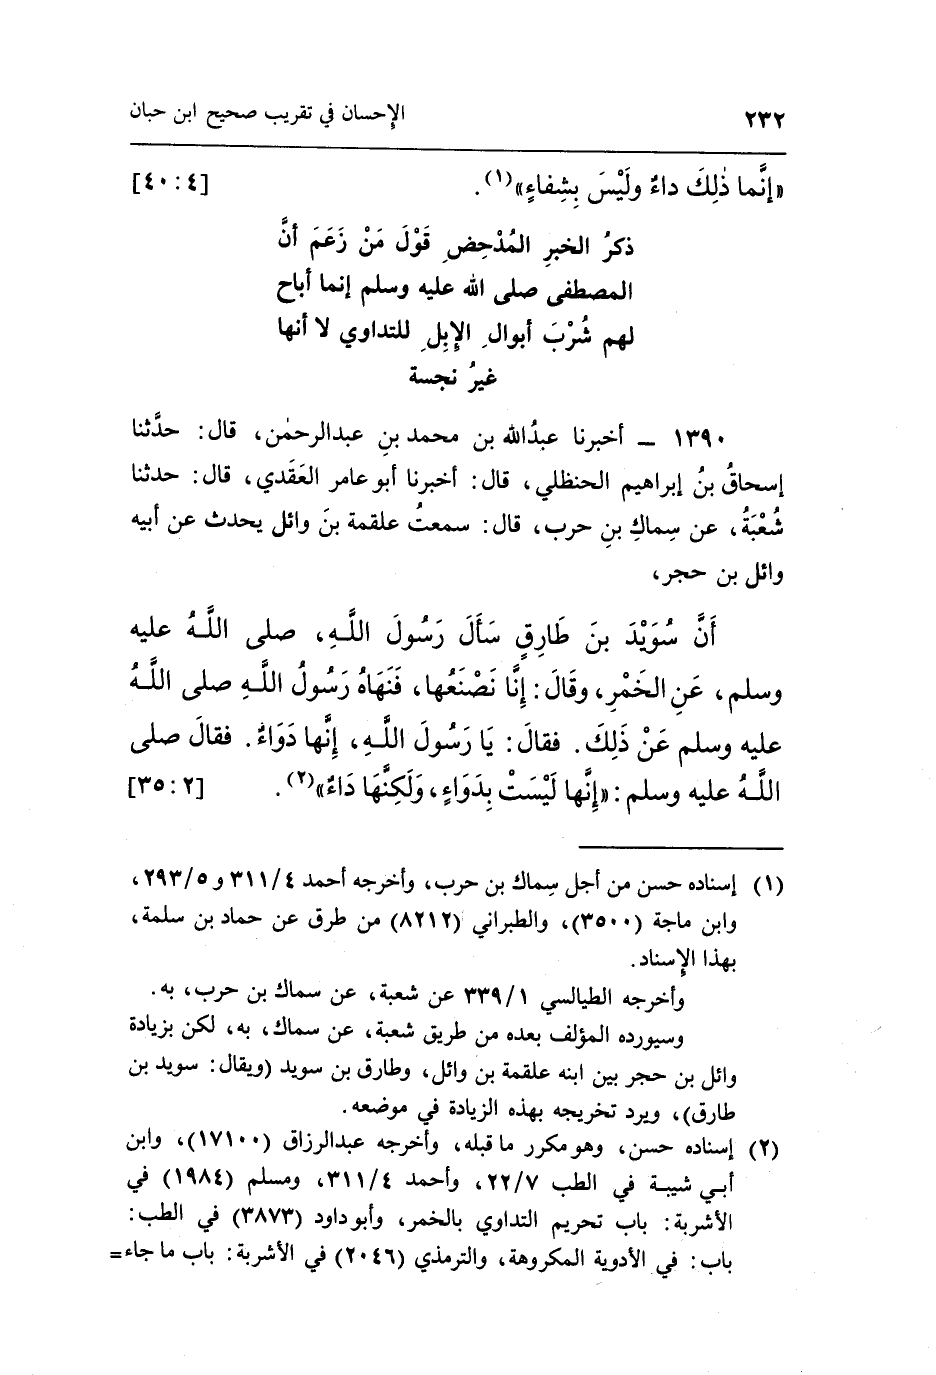 ٢٣٢ الإحسان في تقريب صحيح ابن حبان
«إنَّما ذٰلِكَ داءٌ ولَيْسَ بِشِفاءٍ»(١). [٤٠:٤]
ذكرُ الخبرِ المُدْحِضِ قَوْلَ مَنْ زَعَمَ أنَّ
المصطفى صلى الله عليه وسلم إنما أباح
لهم شُرْبَ أبوالِ الإبِلِ للتداوي لا أنها
غيرُ نجسة
١٣٩٠ – أخبرنا عبدُالله بن محمد بنِ عبدالرحمٰن، قال: حدَّثنا
إسحاقُ بنُ إبراهيم الحنظلي، قال: أخبرنا أبو عامر العَقَدي، قال: حدثنا
شُعْبَةُ، عن سِماكِ بنِ حرب، قال: سمعتُ علقمة بنَ وائل يحدث عن أبيه
وائل بن حجر،
أَنَّ سُوَيْدَ بنَ طَارِقٍ سَأَلَ رَسُولَ اللَّهِ، صلى اللَّهُ عليه
وسلم، عَنِ الخَمْرِ، وقَالَ: إنَّا نَصْنَعُها، فَنَهَاهُ رَسُولُ اللَّهِ صلى اللَّهُ
عليه وسلم عَنْ ذَلِكَ. فقالَ: يَا رَسُولَ اللَّهِ، إنَّها دَوَاءٌ. فقالَ صلى
اللَّهُ عليه وسلم: «إنَّها لَيْسَتْ بِدَوَاءٍ، وَلَكِنَّهَا دَاءٌ»(٢). [٣٥:٢]
(١) إسناده حسن من أجل سِماك بن حرب، وأخرجه أحمد ٣١١/٤ و ٢٩٣/٥،
وابن ماجة (٣٥٠٠)، والطبراني (٨٢١٢) من طرق عن حماد بن سلمة،
بهذا الإسناد.
وأخرجه الطيالسي ٣٣٩/١ عن شعبة، عن سماك بن حرب، به.
وسيورده المؤلف بعده من طريق شعبة، عن سماك، به، لكن بزيادة
وائل بن حجر بين ابنه علقمة بن وائل، وطارق بن سويد (ويقال: سويد بن
طارق)، ويرد تخريجه بهذه الزيادة في موضعه.
(٢) إسناده حسن، وهو مكرر ما قبله، وأخرجه عبدالرزاق (١٧١٠٠)، وابن
أبي شيبة في الطب ٢٢/٧، وأحمد ٣١١/٤، ومسلم (١٩٨٤) في
الأشربة: باب تحريم التداوي بالخمر، وأبو داود (٣٨٧٣) في الطب:
باب: في الأدوية المكروهة، والترمذي (٢٠٤٦) في الأشربة: باب ما جاء=